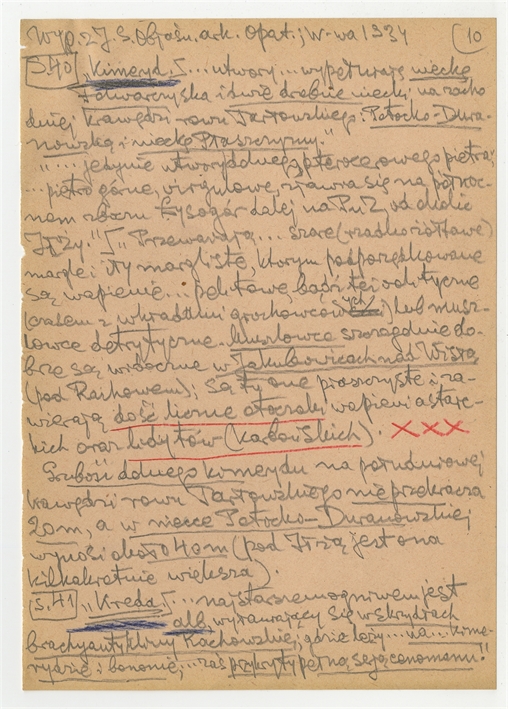 Wyp. z J. S. Objaśn. ark. Opat.; W-wa 1934 (10
S.40 „Kimeryd" [... utwory... wypełniają nieckę
Folwarczyska i dwie drobne niecki na zacho
dniej krawędzi rowu Tarłowskiego: Potocko-Dura-
nowską i nieckę Ptaszczyzny."
"... jedynie utwory dolnego, pteroceowego piętra;
... piętro górne, virgulowe, zjawia się na północ-
nem zboczu Łysogór dalej na PnZ, od okolic
Iłży." [ "Przeważają... szare (rzadko żółtawe)
margle i iły margliste, którym podporządkowane
są wapienie... pelitowe, bądź też oolityczne
(czasem z wkładkami gruchowców) lub musz-
lowce detrytyczne. Muszlowce szczególnie do-
brze są widoczne w Jakubowicach nad Wisłą
(pod Rachowem); są tu one piaszczyste i za-
wierają dość liczne otoczaki wapieni astarc-
kich oraz lidytów (karbońskich). x x x
Grubość dolnego kimerydu na południowej
krawędzi rowu Tarłowskiego nie przekracza
20m, a w niecce Potocko-Duranowskiej
wynosi około 40m (pod Iłżą jest ona
kilkakrotnie większa).
S.41 „Kreda" [... najstarszem ogniwem jest
alb, wynurzający się w skrzydłach
brachyantykliny Rachowskiej, gdzie leży... na... kime-
rydzie i bononie, ... zaś przykryty pełną serją cenomanu."